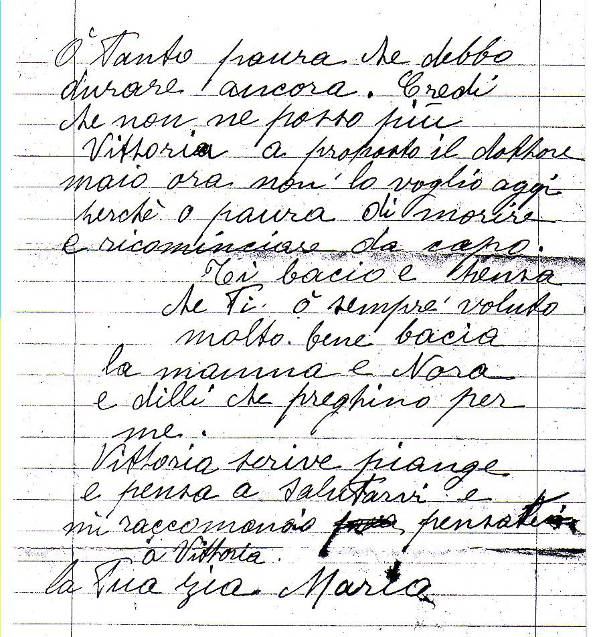 Ò Tanto paura che debbo
durare ancora. Credi
che non ne posso più
Vittoria a proposto il dottore
maio ora non lo voglio aggi
perchè o paura di morire
e ricominciare da capo.
Ti bacio e pensa
che Ti ò sempre voluto
molto bene bacia
la mamma e Nora
e dilli che preghino per
me.
Vittoria scrive piange
e pensa a salutarvi e
mi raccomando pensa
à Vittoria.
la Tua zia Maria